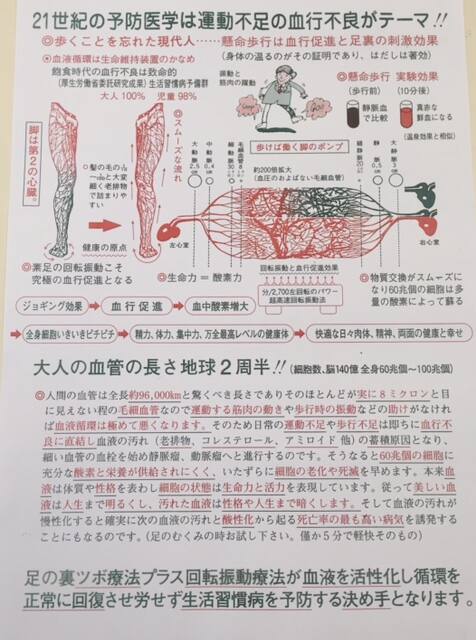 21世紀の予防医学は運動不足の血行不良がテーマ!!
◎歩くことを忘れた現代人……懸命歩行は血行促進と足裏の刺激効果
(身体の温るのがその証明であり、はだしは著効)
◎血液循環は生命維持装置のかなめ
飽食時代の血行不良は致命的
(厚生労働省委託研究成果)生活習慣病予備群
大人 100% 児童 98%
振動と
筋肉の躍動
Stop!
Go!
◎懸命歩行 実験効果
(歩行前)
(10分後)
静脈血
で比較
真赤な
鮮血になる
(温泉効果と相似)
脚は第2の心臓。
◎髪の毛の
と大変
細く老排物
で詰まりや
すい
健康の原点
◎スムーズな流れ
歩けば働く脚のポンプ
大動脈 2.5cm
中動脈 0.4cm
細動脈 30
毛細血管 8
細静脈 20
静脈 0.5cm
大静脈 3cm
約200倍拡大
(血圧のおよばない毛細血管)
左心室
右心室
◎素足の回転振動こそ
究極の血行促進となる
◎生命力=酸素力
回転振動と血行促進効果
分/2,700左回転のパワー
超高速回転振動法
◎物質交換がスムーズに
なり60兆個の細胞は多
量の酸素によって蘇る
ジョギング効果
血行促進
血中酸素増大
全身細胞いきいきピチピチ
精力、体力、集中力、万全最高レベルの健康体
快適な日々肉体、精神、両面の健康と幸せ
大人の血管の長さ地球2周半!!(細胞数、脳140億 全身60兆個〜100兆個)
◎人間の血管は全長約96,000kmと驚くべき長さでありそのほとんどが実に8ミクロンと目
に見えない程の毛細血管なので運動する筋肉の動きや歩行時の振動などの助けがなけれ
ば血液循環は極めて悪くなります。そのため日常の運動不足や歩行不足は即ちに血行不
良に直結し血液の汚れ(老排物、コレステロール、アミロイド他)の蓄積原因となり、
細い血管の血栓を始め静脈瘤、動脈瘤へと進行するのです。そうなると60兆個の細胞に
充分な酸素と栄養が供給されにくく、いたずらに細胞の老化や死滅を早めます。本来血
液は体質や性格を表わし細胞の状態は生命力と活力を表現しています。従って美しい血
液は人生まで明るくし、汚れた血液は性格や人生まで暗くします。そして血液の汚れが
慢性化すると確実に次の血液の汚れと酸性化から起る死亡率の最も高い病気を誘発する
ことにもなるのです。(足のむくみの時お試し下さい。僅か5分で軽快そのもの)
足の裏ツボ療法プラス回転振動療法が血液を活性化し循環を
正常に回復させ労せず生活習慣病を予防する決め手となります。